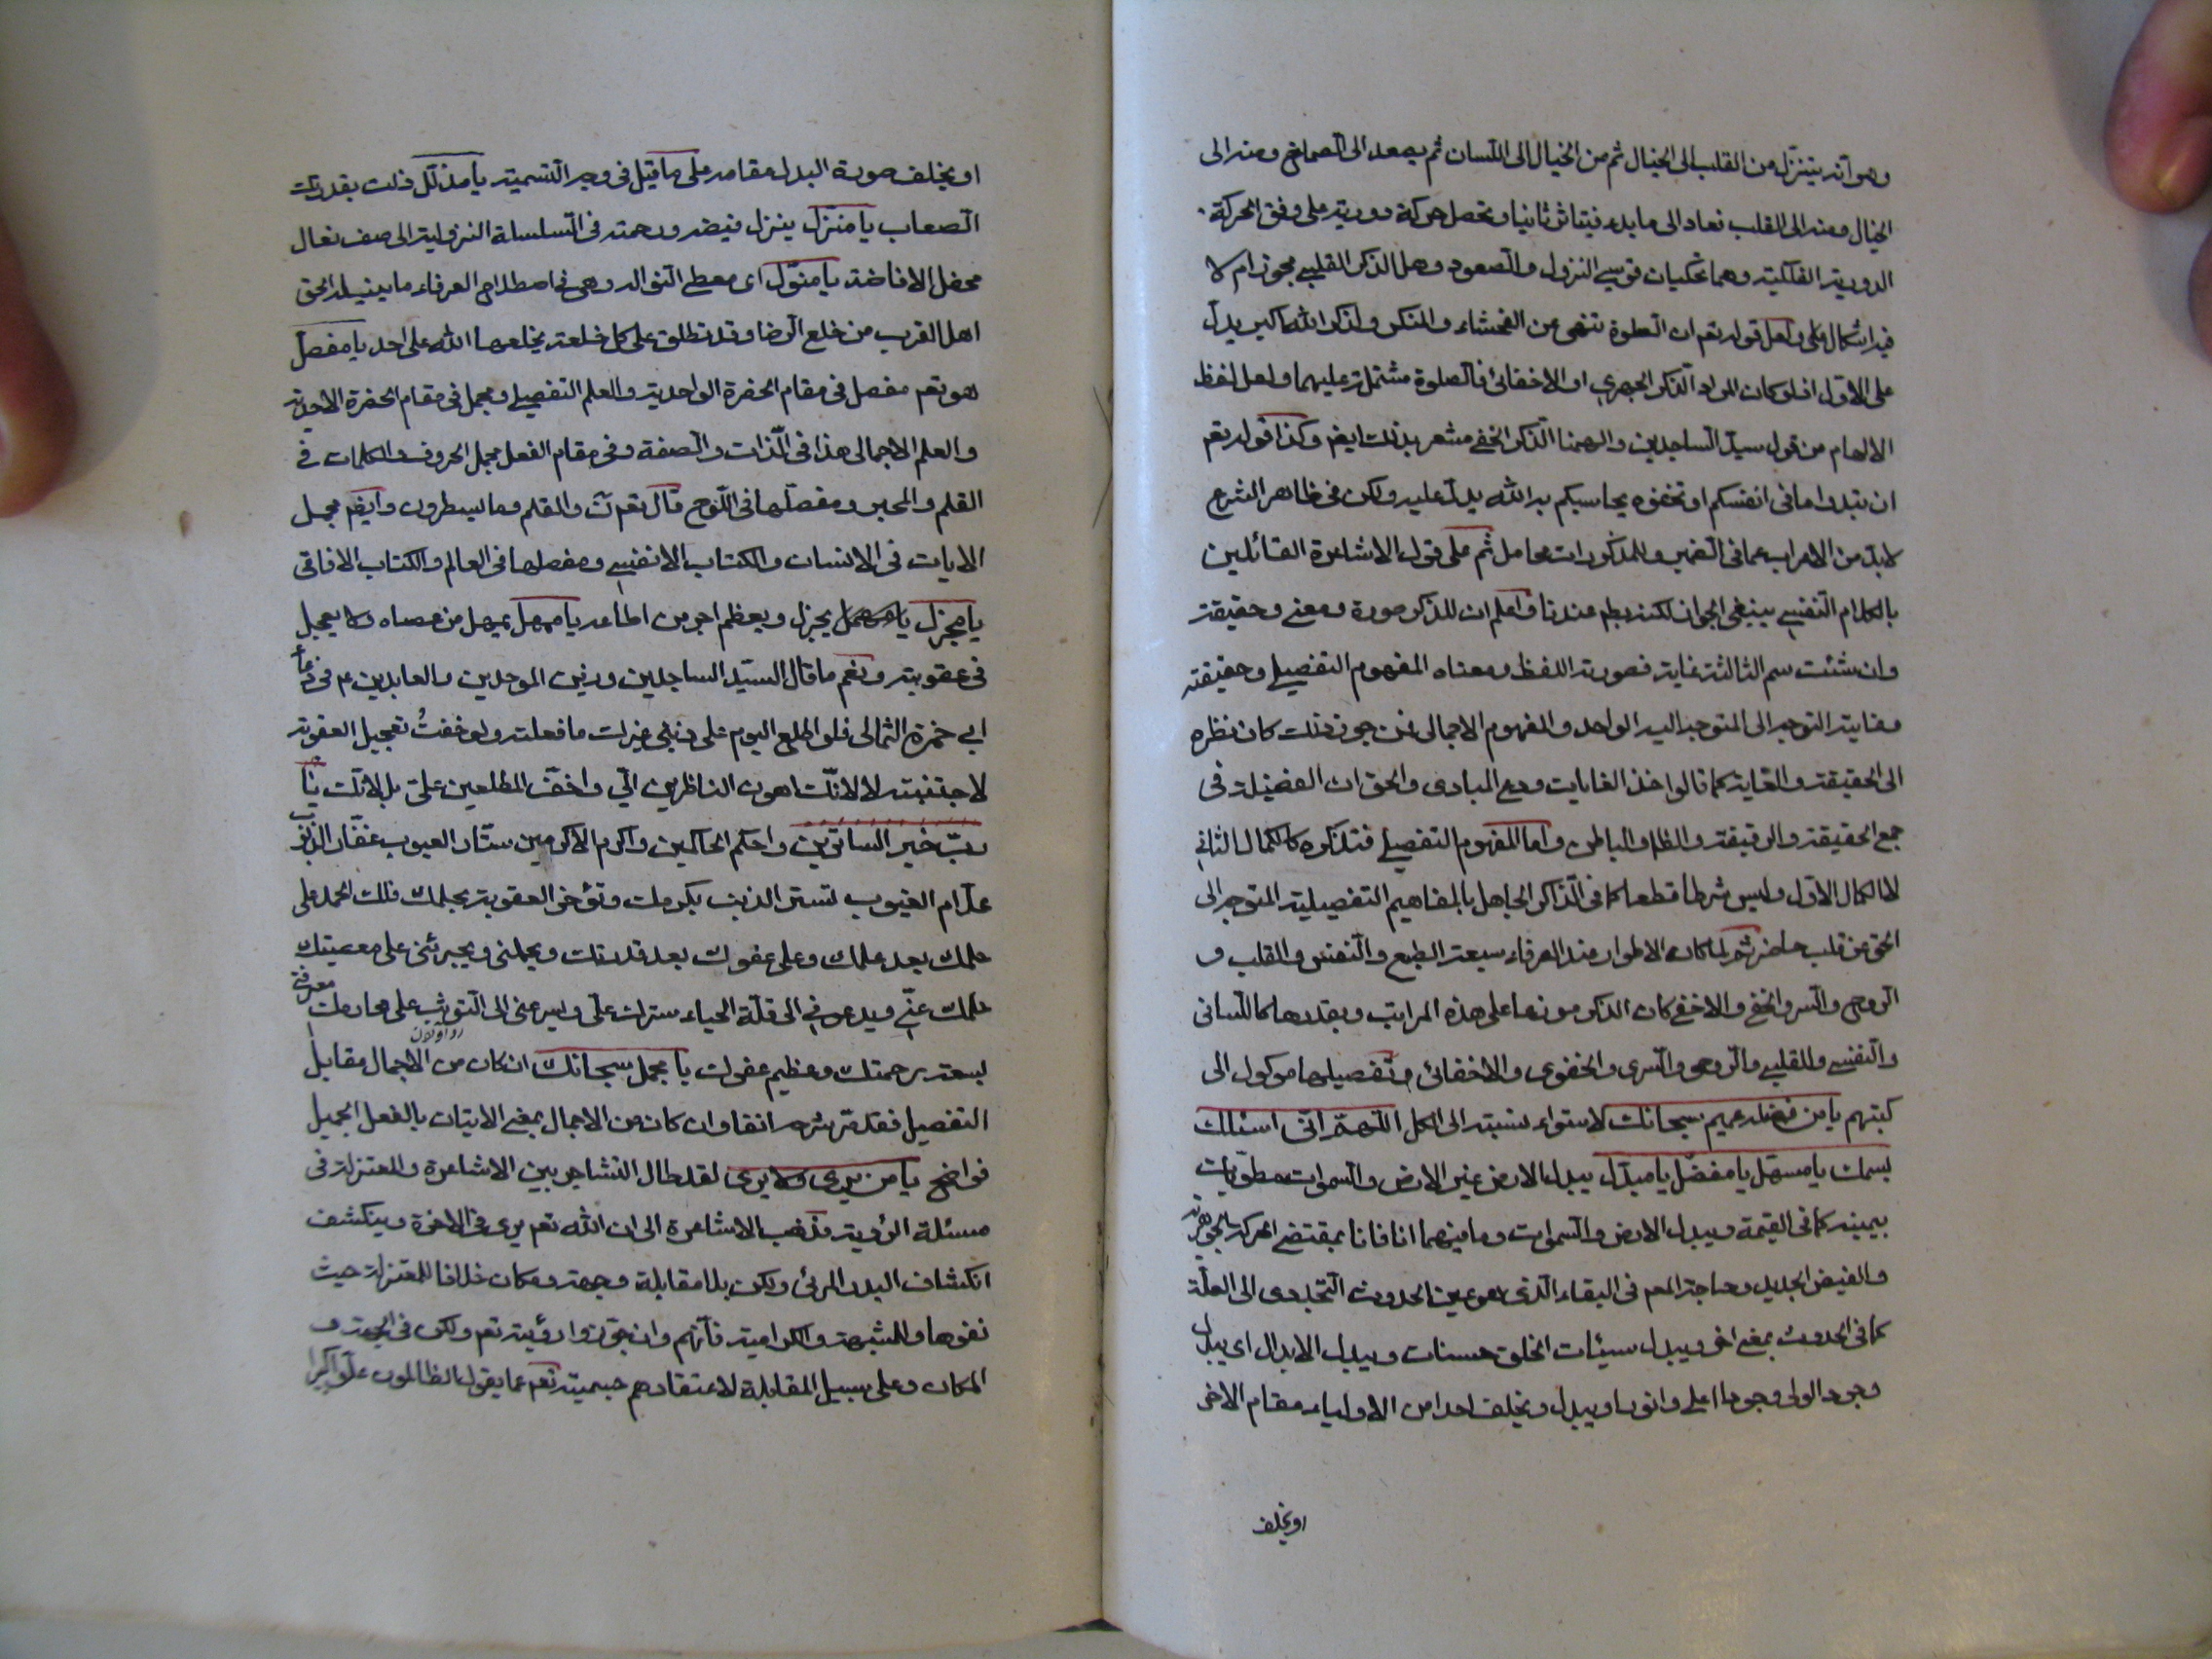 وهو انه يتنزل من القلب الى الخيال ثم من الخيال الى اللسان ثم يصعد الى الصماخ ومنه الى
الخيال ومنه الى القلب فعاد الى ما بدء فيتاثر ثانيا وتحصل حركة دورية على وفق الحركة
الدورية الفلكية وهما تحكيان قوسي النزول والصعود وهل الذكر القلبي يجوز ام لا
فيه اشكال على ولعل قوله تعم ان الصلوة تنهى عن الفحشاء والمنكر ولذكر الله اكبر يدل
على الاول اذ لو كان المراد الذكر الجهري او الاخفائي فالصلوة مشتملة عليهما ولعل لفظ
الالهام من قول سيد الساجدين والهمنا الذكر الخفي مشعر بذلك ايضم وكذا قوله تعم
ان تبدوا ما في انفسكم او تخفوه يحاسبكم به الله يدل عليه ولكن في ظاهر الشرع
لا بد من الاعراب عما في الضمير والمذكورات محامل ثم على قول الاشاعرة القائلين
بالكلام النفسي ينبغي الجواز لكنه بط عندنا واعلم ان للذكر صورة ومعنى وحقيقة
وان شئت سم الثالثة غاية فصورته اللفظ ومعناه المفهوم التفصيلي وحقيقته
وغايته التوجه الى المتوجه اليه الواحد والمفهوم الاجمالي فمن جوز ذلك كان نظره
الى الحقيقة والغاية كما قالوا خذ الغايات ودع المبادى والحق ان الفضيلة في
جمع الحقيقة والرقيقة والظاهر والباطن واما المفهوم التفصيلي فتذكره كالكمال الثاني
لا الكمال الاول وليس شرطا قطعا كما في الذاكر الجاهل بالمفاهيم التفصيلية المتوجه الى
الحق عن قلب حاضر ثم لما كان الاطوار عند العرفاء سبعة الطبع والنفس والقلب و
الروح والسر والخفي والاخفى كان الذكر موزعا على هذه المراتب وبعددها كاللسانى
والنفسي والقلبي والروحي والسرى والخفوى والاخفائي وتفصيلها موكول الى
كتبهم يا من فضله عميم سبحانك لاستواء نسبته الى الكل اللهم انى اسئلك
بسمك يا مسهل يا مفضل يا مبدل يبدل الارض غير الارض والسموات مطويات
بيمينه كما في القيمة ويبدل الارض والسموات وما فيهما انا فانا بمقتضى الحركة الجوهرية
والفيض الجديد وحاجة المعم في البقاء الذى هو عين الحدوث التجددى الى العلة
كما في الحدوث بمعنى اخر ويبدل سيئات الخلق حسنات ويبدل الابدال اى يبدل
وجود الولى وجودا اعلى وانور او يبدل ويخلف احدا من الاولياء مقام الاخر
او يخلف
او يخلف صورة البدل مقامه على ما قيل في وجه التسمية يا مذلل ذلت بقدرتك
الصعاب يا منزل ينزل فيضه ورحمته في السلسلة النزولية الى صف نعال
محفل الافاضة يا منول اى معطي النوال وهي في اصطلاح العرفاء ما ينيله الحق
اهل القرب من خلع الرضا وقد تطلق على كل خلعة يخلعها الله على احد يا مفصل
هو تعم مفصل في مقام الحضرة الواحدية والعلم التفصيلي ومجمل في مقام الحضرة الاحدية
والعلم الاجمالى هذا في الذات والصفة وفي مقام الفعل مجمل الحروف والكلمات في
القلم والمحبر ومفصلها في اللوح قال تعم ن والقلم وما يسطرون وايضم مجمل
الايات في الانسان والكتاب الانفسي ومفصلها في العالم والكتاب الافاقى
يا مجزل يجزل ويعظم اجر من اطاعه يا ممهل يمهل من عصاه ولا يعجل
في عقوبته ونعم ما قال السيد الساجدين وزين الموحدين والعابدين ع في دعاء
ابي حمزة الثمالى فلو اطلع اليوم على ذنبي غيرك ما فعلته ولو خفتُ تعجيل العقوبة
لاجتنبته لا لانك اهون الناظرين الي واخف المطلعين علي بل لانك يا
رب خير الساترين واحكم الحاكمين واكرم الاكرمين ستار العيوب غفار الذنوب
علام الغيوب تستر الذنب بكرمك وتؤخر العقوبة بحلمك فلك الحمد على
حلمك بعد علمك وعلى عفوك بعد قدرتك ويحملنى ويجرئنى على معصيتك
حلمك عني ويدعونى الى قلة الحياء سترك علي ويسرعنى الى التوثب على محارمك معرفتى
بسعة رحمتك وعظيم عفوك يا مجمل سبحانك ان كان من الاجمال مقابل
التفصيل فقد مر شرحه انفا وان كان من الاجمال بمعنى الاتيان بالفعل الجميل
فواضح يا من يرى ولا يرى لقد طال التشاجر بين الاشاعرة والمعتزلة في
مسئلة الرؤية فذهب الاشاعرة الى ان الله تعم يرى في الاخرة وينكشف
انكشاف البدر المرئي ولكن بلا مقابلة وجهة ومكان خلافا للمعتزلة حيث
نفوها وللمشبهة والكرامية فانهم وان جوزوا رؤيته تعم ولكن في الجهة و
المكان وعلى سبيل المقابلة لاعتقادهم جسميته تعم عما يقول الظالمون علوا كبيرا